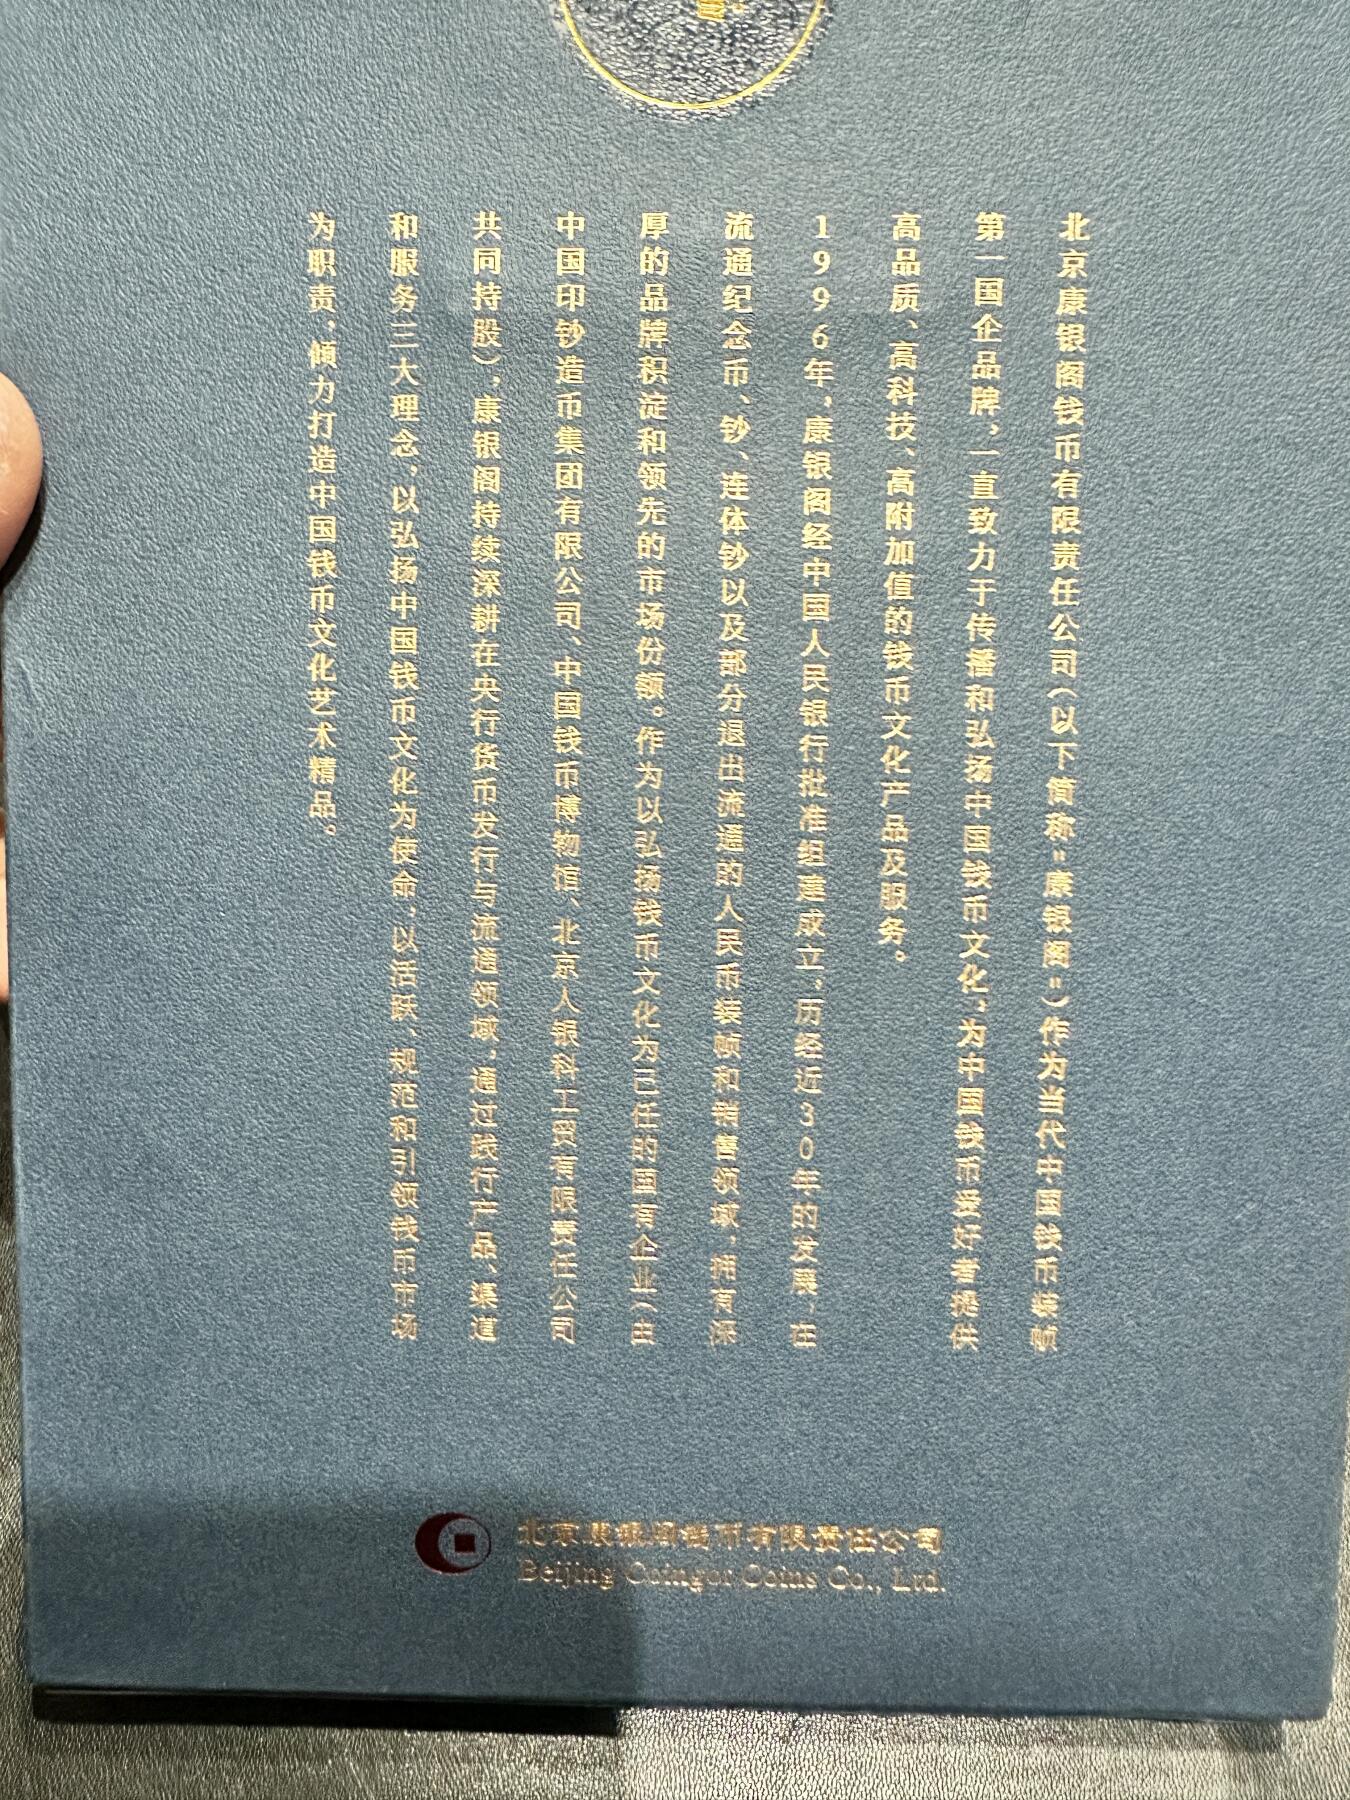 北京康银阁钱币有限责任公司（以下简称"康银阁"）作为当代中国钱币装帧
第一国企品牌，一直致力于传播和弘扬中国钱币文化，为中国钱币爱好者提供
高品质、高科技、高附加值的钱币文化产品及服务。
1996年，康银阁经中国人民银行批准组建成立，历经近30年的发展，在
流通纪念币、钞、连体钞以及部分退出流通的人民币装帧和销售领域，拥有深
厚的品牌积淀和领先的市场份额。作为以弘扬钱币文化为己任的国有企业（由
中国印钞造币集团有限公司、中国钱币博物馆、北京人银科工贸有限责任公司
共同持股），康银阁持续深耕在央行货币发行与流通领域，通过践行产品、渠道
和服务三大理念，以弘扬中国钱币文化为使命，以活跃、规范和引领钱币市场
为职责，倾力打造中国钱币文化艺术精品。
北京康银阁钱币有限责任公司
Beijing Coinger Coins Co., Ltd.